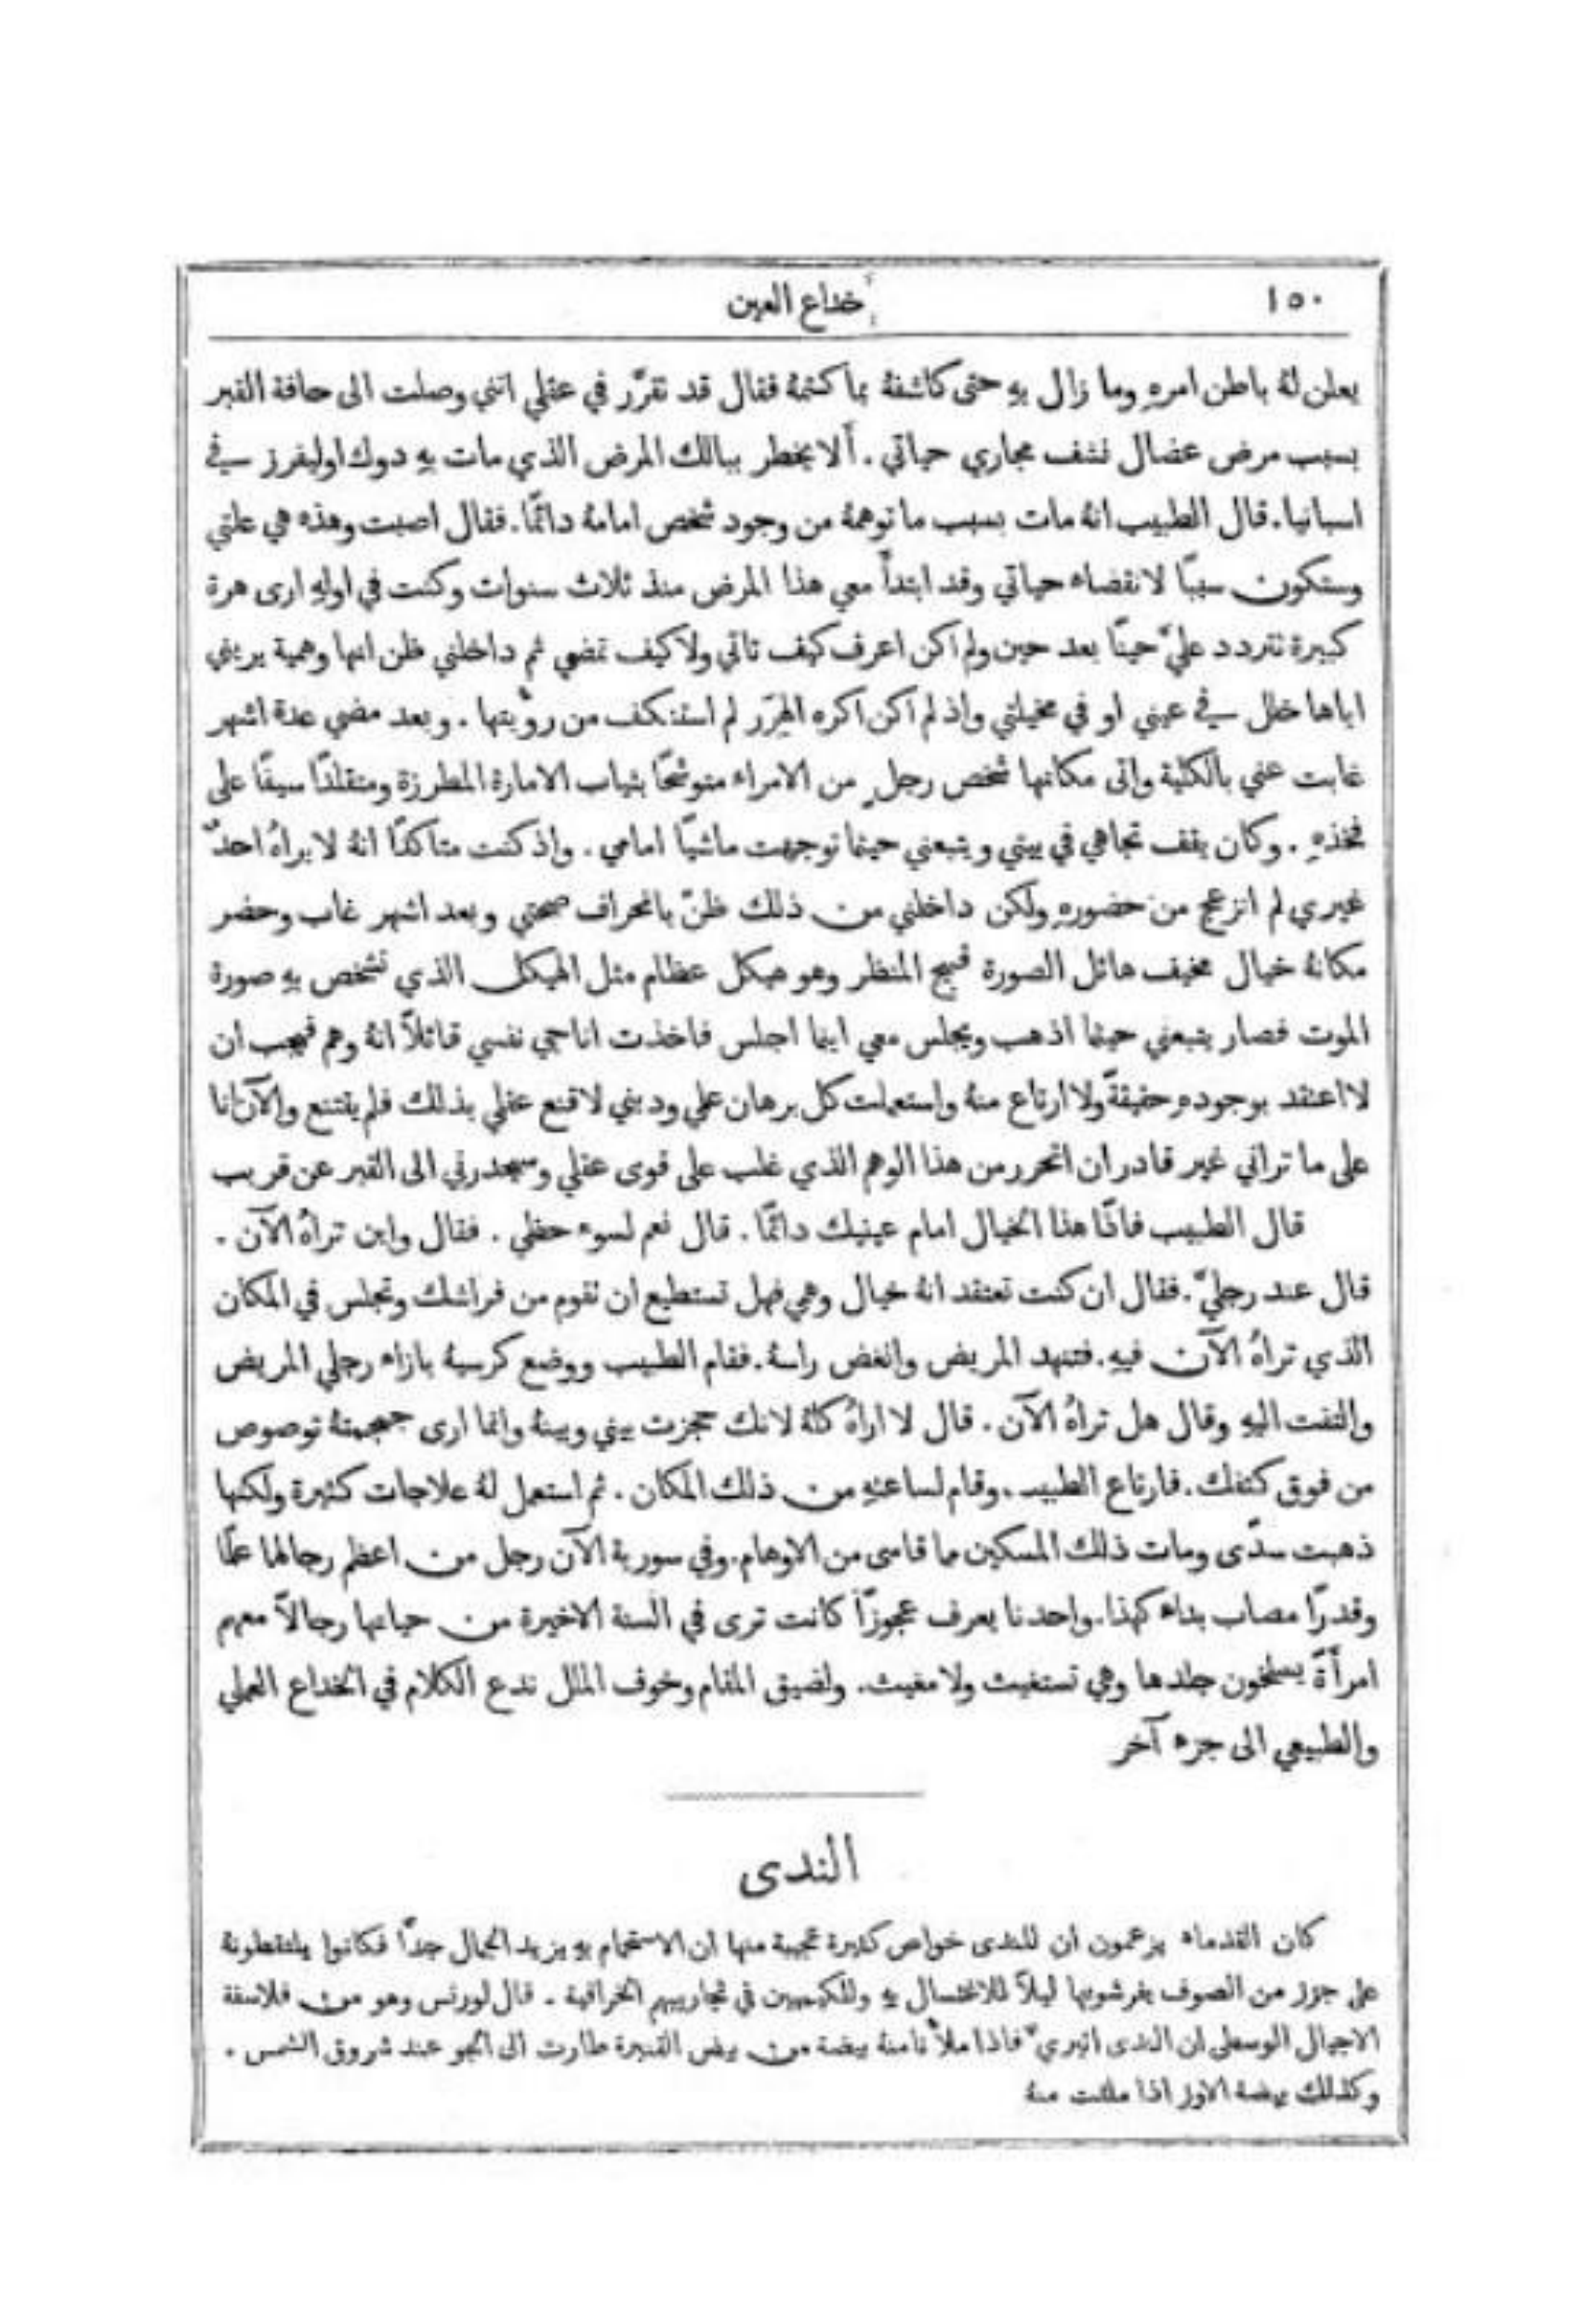 ١٥٠
خداع العين
يعلن لهُ باطن امرهِ وما زال بهِ حتى كاشفهُ بما كتمهُ فقال قد تقرَّر في عقلي انني وصلت الى حافة القبر
بسبب مرض عضال نشف مجاري حياتي . ألا يخطر ببالك المرض الذي مات بهِ دوك اوليفرز في
اسبانيا . قال الطبيب انهُ مات بسبب ما توهمهُ من وجود شخص امامهُ دائمًا . فقال اصبت وهذه هي علتي
وستكون سببًا لانقضاء حياتي وقد ابتدأَ معي هذا المرض منذ ثلاث سنوات وكنت في اولهِ ارى هرة
كبيرة تتردد عليَّ حينًا بعد حين ولم اكن اعرف كيف تاتي ولا كيف تمضي ثم داخلني ظن انها وهمية يريني
اياها خلل في عيني او في مخيلتي واذ لم اكن اكره الهِرَر لم استنكف من رؤيتها . وبعد مضي عدة اشهر
غابت عني بالكلية واتى مكانها شخص رجلٍ من الامراء متوشحًا بثياب الامارة المطرزة ومتقلدًا سيفًا على
فخذهِ . وكان يقف تجاهي في بيتي ويتبعني حيثما توجهت ماشيًا امامي . واذ كنت متاكدًا انهُ لا يراهُ احدٌ
غيري لم انزعج من حضورهِ ولكن داخلني من ذلك ظنٌّ بانحراف صحتي وبعد اشهر غاب وحضر
مكانهُ خيال مخيف هائل الصورة قبيح المنظر وهو هيكل عظام مثل الهيكل الذي تشخص بهِ صورة
الموت فصار يتبعني حيثما اذهب ويجلس معي اينما اجلس فاخذت اناجي نفسي قائلاً انهُ وهم فيجب ان
لا اعتقد بوجودهِ حقيقةً ولا ارتاع منهُ واستعملت كل برهان علمي وديني لاقنع عقلي بذلك فلم يقتنع والآن انا
على ما تراني غير قادر ان اتحرر من هذا الوهم الذي غلب على قوى عقلي وسيحدرني الى القبر عن قريب
قال الطبيب فاذًا هذا الخيال امام عينيك دائمًا . قال نعم لسوء حظي . فقال واين تراهُ الآن .
قال عند رجليَّ . فقال ان كنت تعتقد انهُ خيال وهمي فهل تستطيع ان تقوم من فراشك وتجلس في المكان
الذي تراهُ الآن فيهِ . فتنهد المريض وانغض راسهُ . فقام الطبيب ووضع كرسيهُ بازاء رجلي المريض
والتفت اليهِ وقال هل تراهُ الآن . قال لا اراهُ كلهُ لانك حجزت بيني وبينهُ وانما ارى جمجمتهُ توصوص
من فوق كتفك . فارتاع الطبيب . وقام لساعتهِ من ذلك المكان . ثم استعمل لهُ علاجات كثيرة ولكنها
ذهبت سدًى ومات ذلك المسكين مما قاسى من الاوهام . وفي سورية الآن رجل من اعظم رجالها علمًا
وقدرًا مصاب بداء كهذا . واحدنا يعرف عجوزًا كانت ترى في السنة الاخيرة من حياتها رجالاً معهم
امرأَة يسلخون جلدها وهي تستغيث ولا مغيث . ولضيق المقام وخوف الملل ندع الكلام في الخداع العملي
والطبيعي الى جزء آخر
الندى
كان القدماء يزعمون ان للندى خواص كثيرة عجيبة منها ان الاستحمام بهِ يزيد الجمال جدًّا فكانوا يلتقطونهُ
على جزز من الصوف يفرشونها ليلاً للاغتسال بهِ وللكيميين في تجاربهم الخرافية . قال لورنس وهو من فلاسفة
الاجيال الوسطى ان الندى اثيريٌّ فاذا ملأْنا منهُ بيضة من بيض القنبرة طارت الى الجو عند شروق الشمس .
وكذلك بيضة الاوز اذا ملئت منهُ